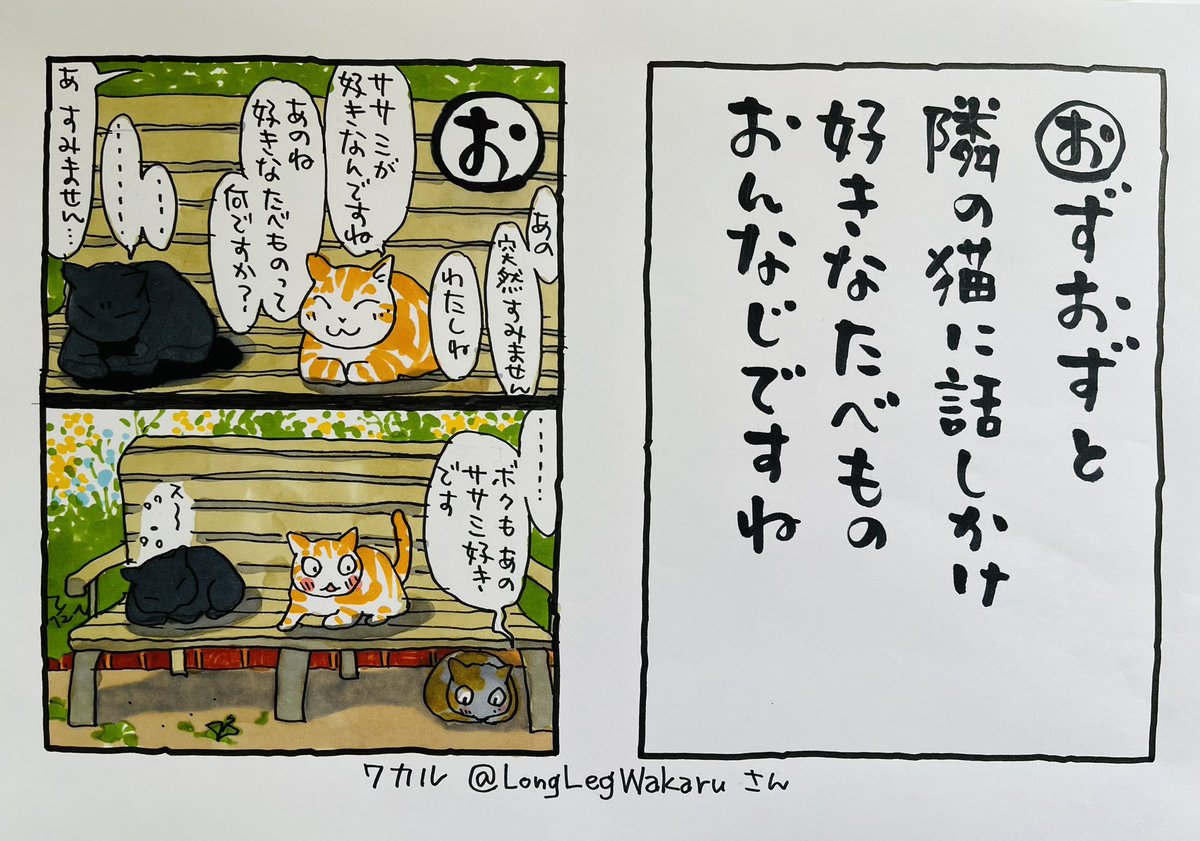 おずおずと
隣の猫に話しかけ
好きなたべもの
おんなじですね
お
あの
突然すみません
わたしね
ササミが
好きなんですね
あのね
好きなたべものって
何ですか?
……
………
あ すみません…
………
ボクもあの
ササミ好き
です
スー
ワカル @LongLegWakaru さん